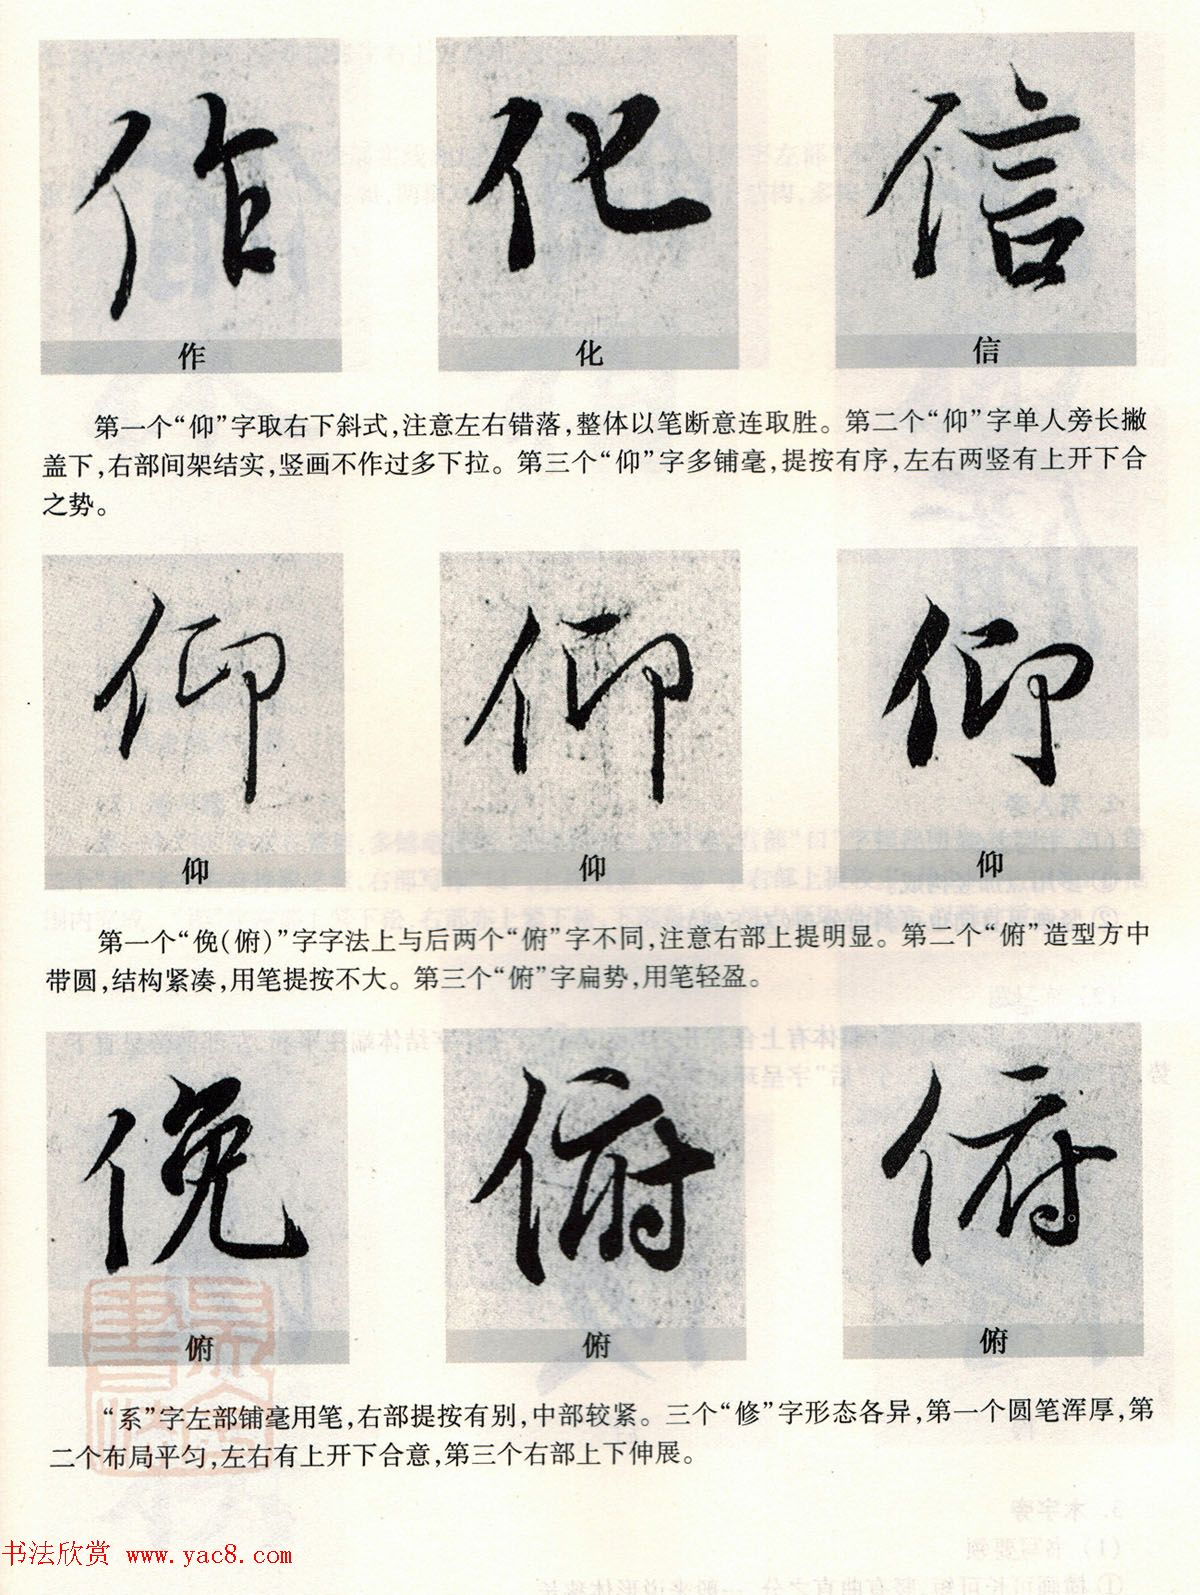 作 化 信
作 化 信
第一个“仰”字取右下斜式,注意左右错落,整体以笔断意连取胜。第二个“仰”字单人旁长撇
盖下,右部间架结实,竖画不作过多下拉。第三个“仰”字多铺毫,提按有序,左右两竖有上开下合
之势。
仰 仰 仰
仰 仰 仰
第一个“俛(俯)”字字法上与后两个“俯”字不同,注意右部上提明显。第二个“俯”造型方中
带圆,结构紧凑,用笔提按不大。第三个“俯”字扁势,用笔轻盈。
俛 俯 俯
俯 俯 俯
“系”字左部铺毫用笔,右部提按有别,中部较紧。三个“修”字形态各异,第一个圆笔浑厚,第
二个布局平匀,左右有上开下合意,第三个右部上下伸展。
书法欣赏 www.yac8.com